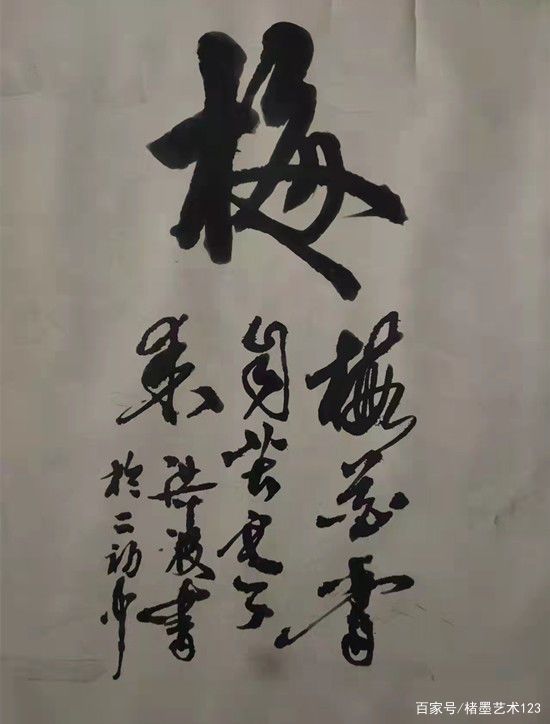 梅
梅花香
自苦寒
来
洪波書
於二初中
百家号/楮墨艺术123